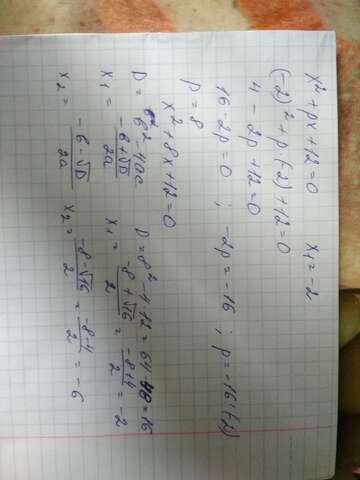 x² + px + 12 = 0 x₁ = -2
(-2)² + p(-2) + 12 = 0
4 - 2p + 12 = 0
16 - 2p = 0 ; -2p = -16 ; p = -16:(-2)
p = 8
x² + 8x + 12 = 0
D = b² - 4ac D = 8² - 4·12 = 64-48 = 16
x₁ = (-b + √D)/2a x₁ = (-8 + √16)/2 = (-8+4)/2 = -2
x₂ = (-b - √D)/2a x₂ = (-8 - √16)/2 = (-8-4)/2 = -6